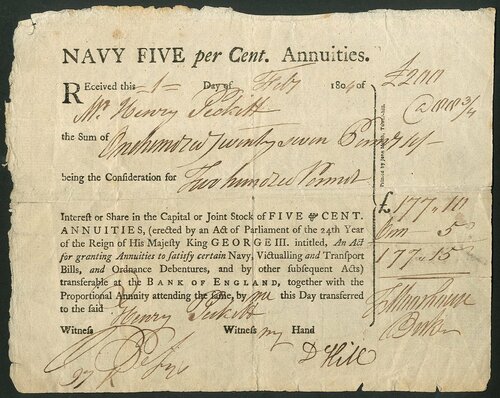 NAVY FIVE per Cent. Annuities.
Received this 1 Day of Feby 180 of £200
Mr. Henry Pickett @ 88 3/4
the Sum of One hundred Seventy seven Pounds 10/-
being the Consideration for Two hundred Pounds
£177,,10
Interest or Share in the Capital or Joint Stock of FIVE ⅌ CENT.
ANNUITIES, (erected by an Act of Parliament of the 24th Year
of the Reign of His Majesty King GEORGE III. intitled, An Act
for granting Annuities to satisfy certain Navy, Victualling and Transport
Bills, and Ordnance Debentures, and by other subsequent Acts)
transferable at the BANK OF ENGLAND, together with the
Proportional Annuity attending the same, by me this Day transferred
to the said Henry Pickett
Witness Witness my Hand
D Hill
5
177,,15
Printed by